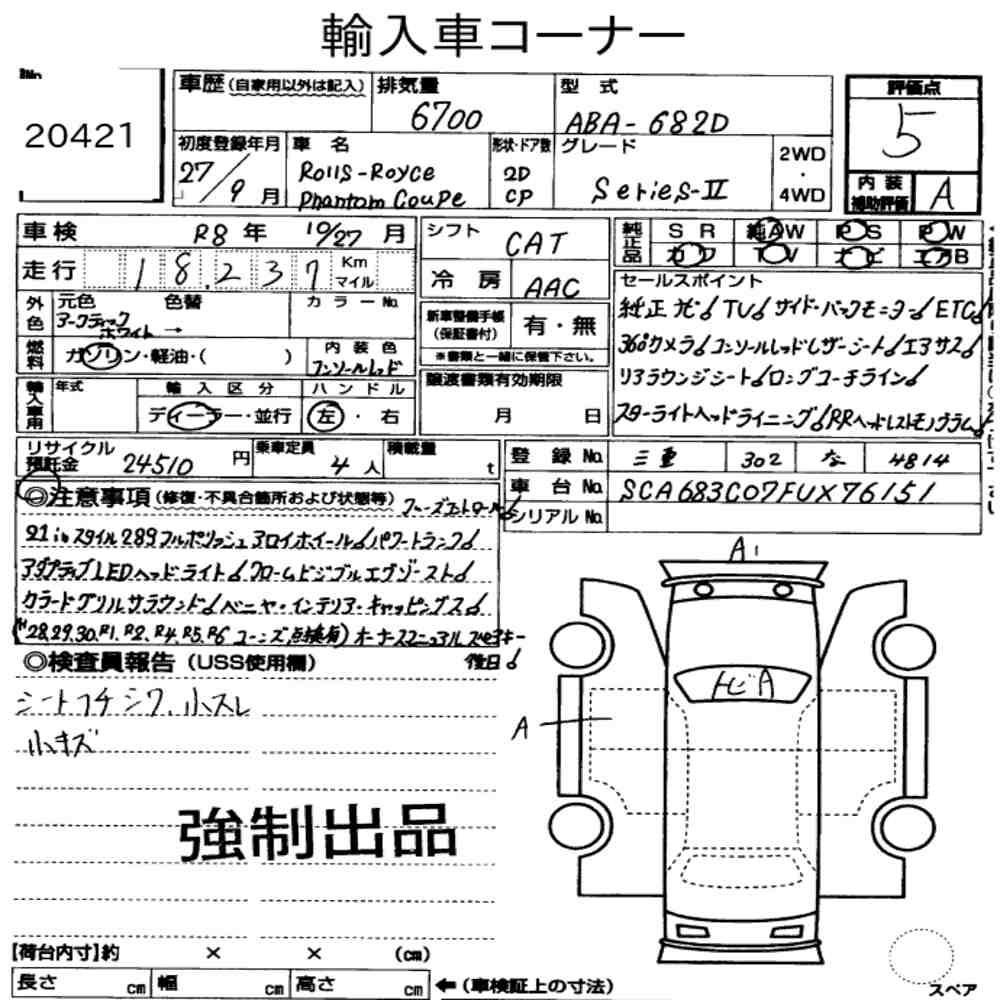 輸入車コーナー
No.
20421
車歴 (自家用以外は記入) 排気量 6700 型式 ABA-682D
初度登録年月 27/9月
車名 Rolls-Royce Phantom Coupe
形状・ドア数 2D CP
グレード Series-II
2WD・4WD
評価点 5
内装補助評価 A
車検 R8年 10/27月
走行 18,237 Km マイル
シフト CAT
冷房 AAC
純正品 SR 純AW PS PW
カワ TV ナビ エアB
外色 元色 色替 カラーNo.
アークティックホワイト →
燃料 ガソリン・軽油・( )
内装色 コンソールレッド
新車整備手帳(保証書付) 有・無
※書類と一緒に保管下さい。
輸入車用 年式 輸入区分 ディーラー・並行
ハンドル 左・右
譲渡書類有効期限
月 日
セールスポイント
純正ナビ TV サイド・バックモニター ETC
360°カメラ コンソールレッドレザーシート エアサス
リアラウンジシート ロングコーチライン
スターライトヘッドライニング RRヘッドレストモノグラム
リサイクル預託金 24510円
乗車定員 4人
積載量 t
登録No. 三重 302 な 4814
車台No. SCA683C07FUX76151
シリアルNo.
◎注意事項 (修復・不具合箇所および状態等) クルーズコントロール
21inスタイル289フルポリッシュアロイホイール パワートランク
アダプティブLEDヘッドライト クロームビジブルエグゾースト
カラードグリルサラウンド ベニヤ・インテリア・キャッピングス
(H28,29,30,R1,R2,R4,R5,R6 コーンズ点検有) オーナースマニュアル スペアキー
後日
◎検査員報告 (USS使用欄)
シートフチシワ、小スレ
小キズ
強制出品
A1
トビA
A
【荷台内寸】約 × × (cm)
長さ cm 幅 cm 高さ cm ←(車検証上の寸法)
スペア